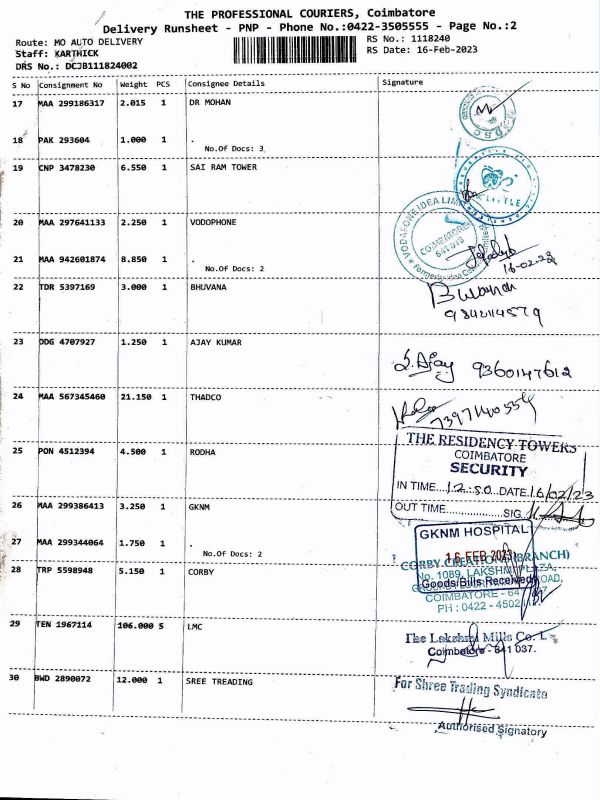 THE PROFESSIONAL COURIERS, Coimbatore
Delivery Runsheet - PNP - Phone No.:0422-3505555 - Page No.:2
Route: MO AUTO DELIVERY
RS No.: 1118240
Staff: KARTHICK
RS Date: 16-Feb-2023
DRS No.: DCJB111824002
S No Consignment No Weight PCS Consignee Details Signature
17 MAA 299186317 2.015 1 DR MOHAN
18 PAK 293604 1.000 1 .
No.Of Docs: 3
19 CNP 3478230 6.550 1 SAI RAM TOWER
20 MAA 297641133 2.250 1 VODOPHONE
VODAFONE IDEA LIM
COIMBATORE
641018
21 MAA 942601874 8.850 1 .
No.Of Docs: 2
16-02-23
22 TDR 5397169 3.000 1 BHUVANA
Buvanah
9842114579
23 DDG 4707927 1.250 1 AJAY KUMAR
S.Ajay 9360147612
24 MAA 567345460 21.150 1 THADCO
7397140559
25 PON 4512394 4.500 1 RODHA
THE RESIDENCY TOWERS
COIMBATORE
SECURITY
IN TIME...12.50..DATE.16/02/23
OUT TIME..................SIG.
26 MAA 299386413 3.250 1 GKNM
GKNM HOSPITAL
27 MAA 299344064 1.750 1 .
No.Of Docs: 2
16 FEB 2023
Goods/Bills Received
28 TRP 5598948 5.150 1 CORBY
CORBY CREATION (BRANCH)
No. 1089, LAKSHMI PLAZA,
ROAD,
COIMBATORE - 64
PH : 0422 - 4502
29 TEN 1967114 106.000 5 LMC
The Lakshmi Mills Co. L
Coimbatore - 641 037.
30 BWD 2890072 12.000 1 SREE TREADING
For Shree Trading Syndicate
Authorised Signatory